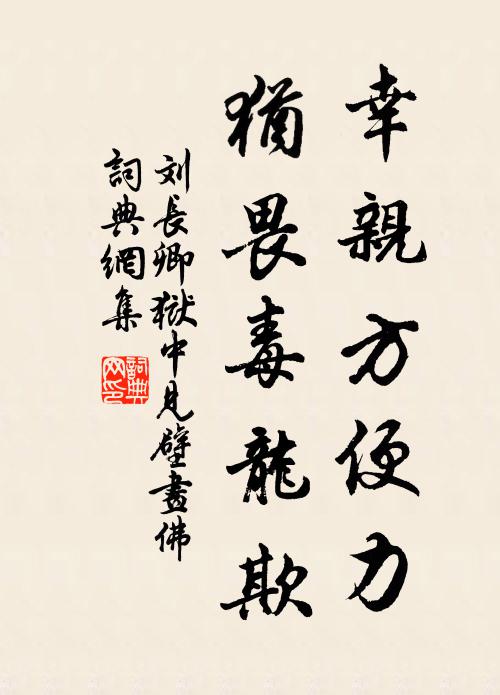 幸親方便力
猶畏毒龍欺
刘長卿獄中見壁畫佛
詞典網集
詞典網印